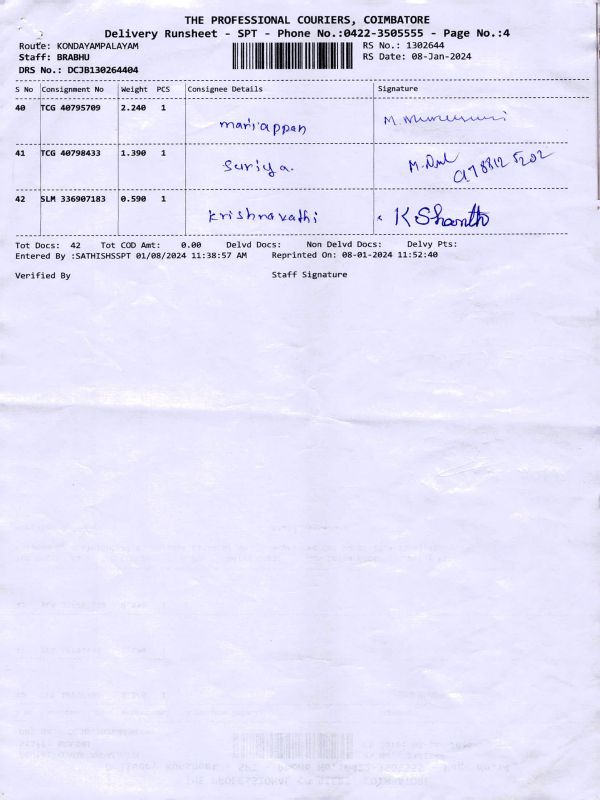 THE PROFESSIONAL COURIERS, COIMBATORE
Delivery Runsheet - SPT - Phone No.:0422-3505555 - Page No.:4
Route: KONDAYAMPALAYAM RS No.: 1302644
Staff: BRABHU RS Date: 08-Jan-2024
DRS No.: DCJB130264404
S No Consignment No Weight PCS Consignee Details Signature
40 TCG 40795709 2.240 1
mariappan
41 TCG 40798433 1.390 1
Suriya.
42 SLM 336907183 0.590 1
Krishnavathi K Shanth
Tot Docs: 42 Tot COD Amt: 0.00 Delvd Docs: Non Delvd Docs: Delvy Pts:
Entered By :SATHISHSSPT 01/08/2024 11:38:57 AM Reprinted On: 08-01-2024 11:52:40
Verified By Staff Signature